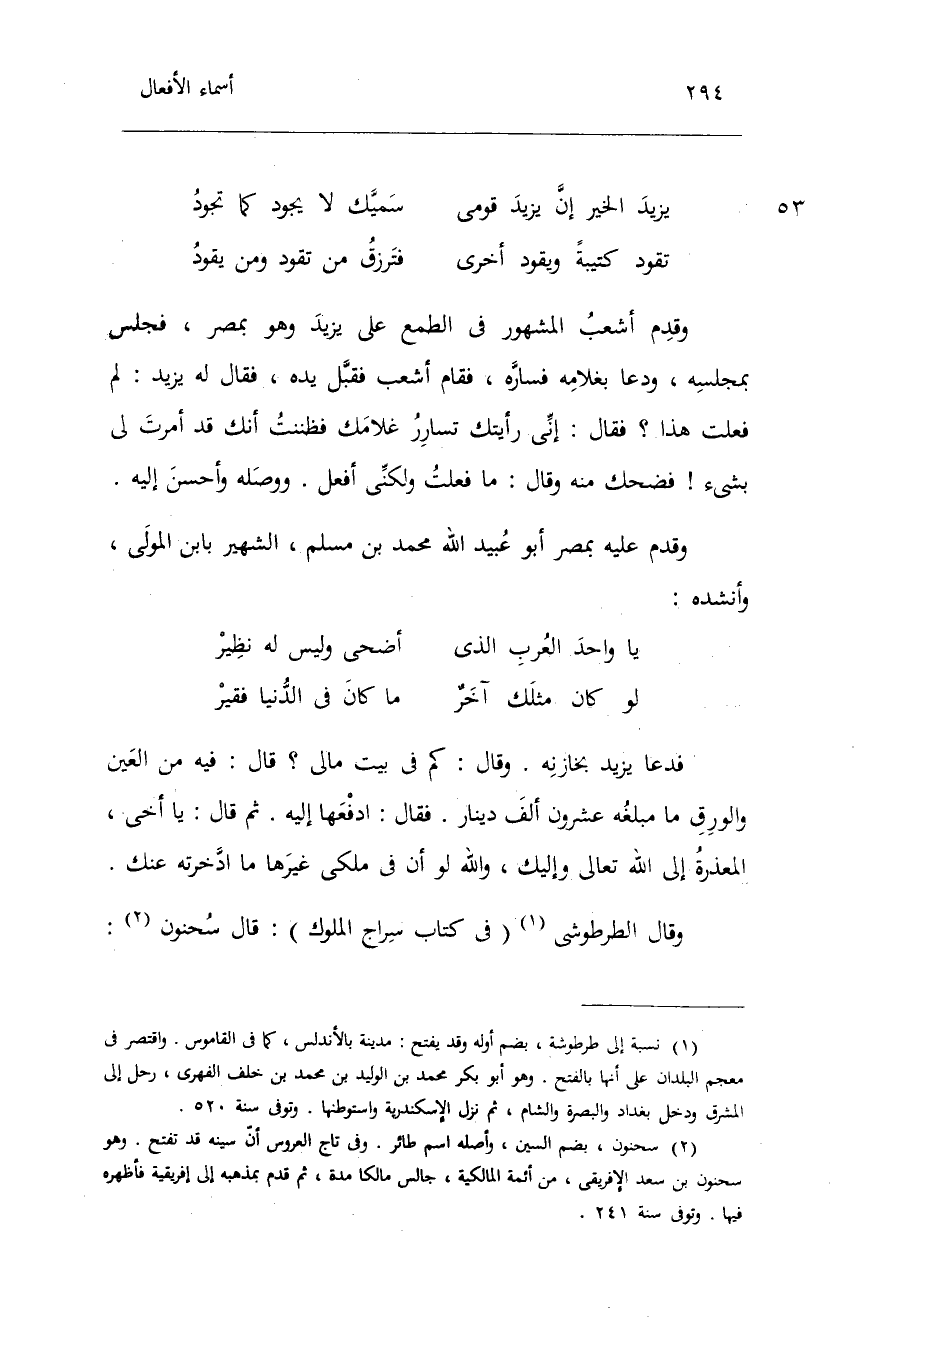 ٢٩٤ أسماء الأفعال
٥٣ يزيدَ الخير إنَّ يزيدَ قومى سَميَّك لا يجود كما تجودُ
تقود كتيبةً ويقود أخرى فتَرزقُ من تقود ومن يقودُ
وقدِم أشعبُ المشهور فى الطمع على يزيدَ وهو بمصر ، فجلس
بمجلسِه ، ودعا بغلامِه فسارَّه ، فقام أشعب فقبَّل يده ، فقال له يزيد : لم
فعلت هذا ؟ فقال : إنِّى رأيتك تسارِرُ غلامَك فظننتُ أنك قد أمرتَ لى
بشىء ! فضحك منه وقال : ما فعلتُ ولكنِّى أفعل . ووصَله وأحسنَ إليه .
وقدم عليه بمصر أبو عُبيد الله محمد بن مسلم ، الشهير بابن المولَى ،
وأنشده :
يا واحدَ العُربِ الذى أضحى وليس له نظِيرْ
لو كان مثلَك آخَرٌ ما كانَ فى الدُّنيا فقيرْ
فدعا يزيد بخازنِه . وقال : كم فى بيت مالى ؟ قال : فيه من العَين
والورِقِ ما مبلغُه عشرون ألفَ دينار . فقال : ادفْعَها إليه . ثم قال : يا أخى ،
المعذرةُ إلى الله تعالى وإليك ، والله لو أن فى ملكى غيرَها ما ادَّخرته عنك .
وقال الطرطوشى (١) ( فى كتاب سِراج الملوك ) : قال سُحنون (٢) :
(١) نسبة إلى طرطوشة ، بضم أوله وقد يفتح : مدينة بالأندلس ، كما فى القاموس . واقتصر فى
معجم البلدان على أنها بالفتح . وهو أبو بكر محمد بن الوليد بن محمد بن خلف الفهرى ، رحل إلى
المشرق ودخل بغداد والبصرة والشام ، ثم نزل الإسكندرية واستوطنها . وتوفى سنة ٥٢٠ .
(٢) سحنون ، بضم السين ، وأصله اسم طائر . وفى تاج العروس أنّ سينه قد تفتح . وهو
سحنون بن سعد الإفريقى ، من أئمة المالكية ، جالس مالكا مدة ، ثم قدم بمذهبه إلى إفريقية فأظهره
فيها . وتوفى سنة ٢٤١ .